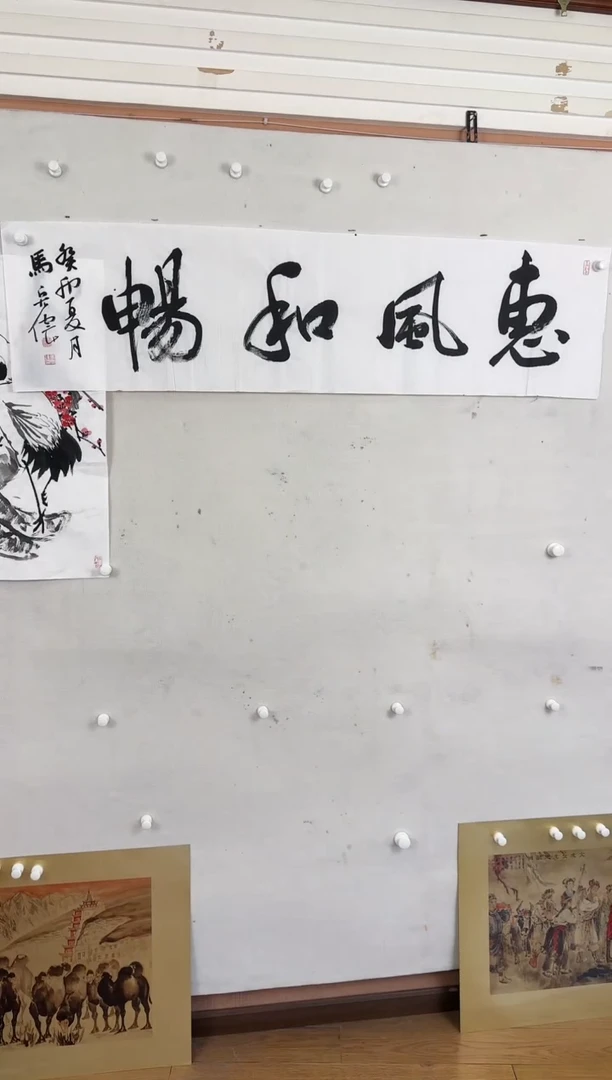 惠風和暢
癸卯夏月
馬兵儒